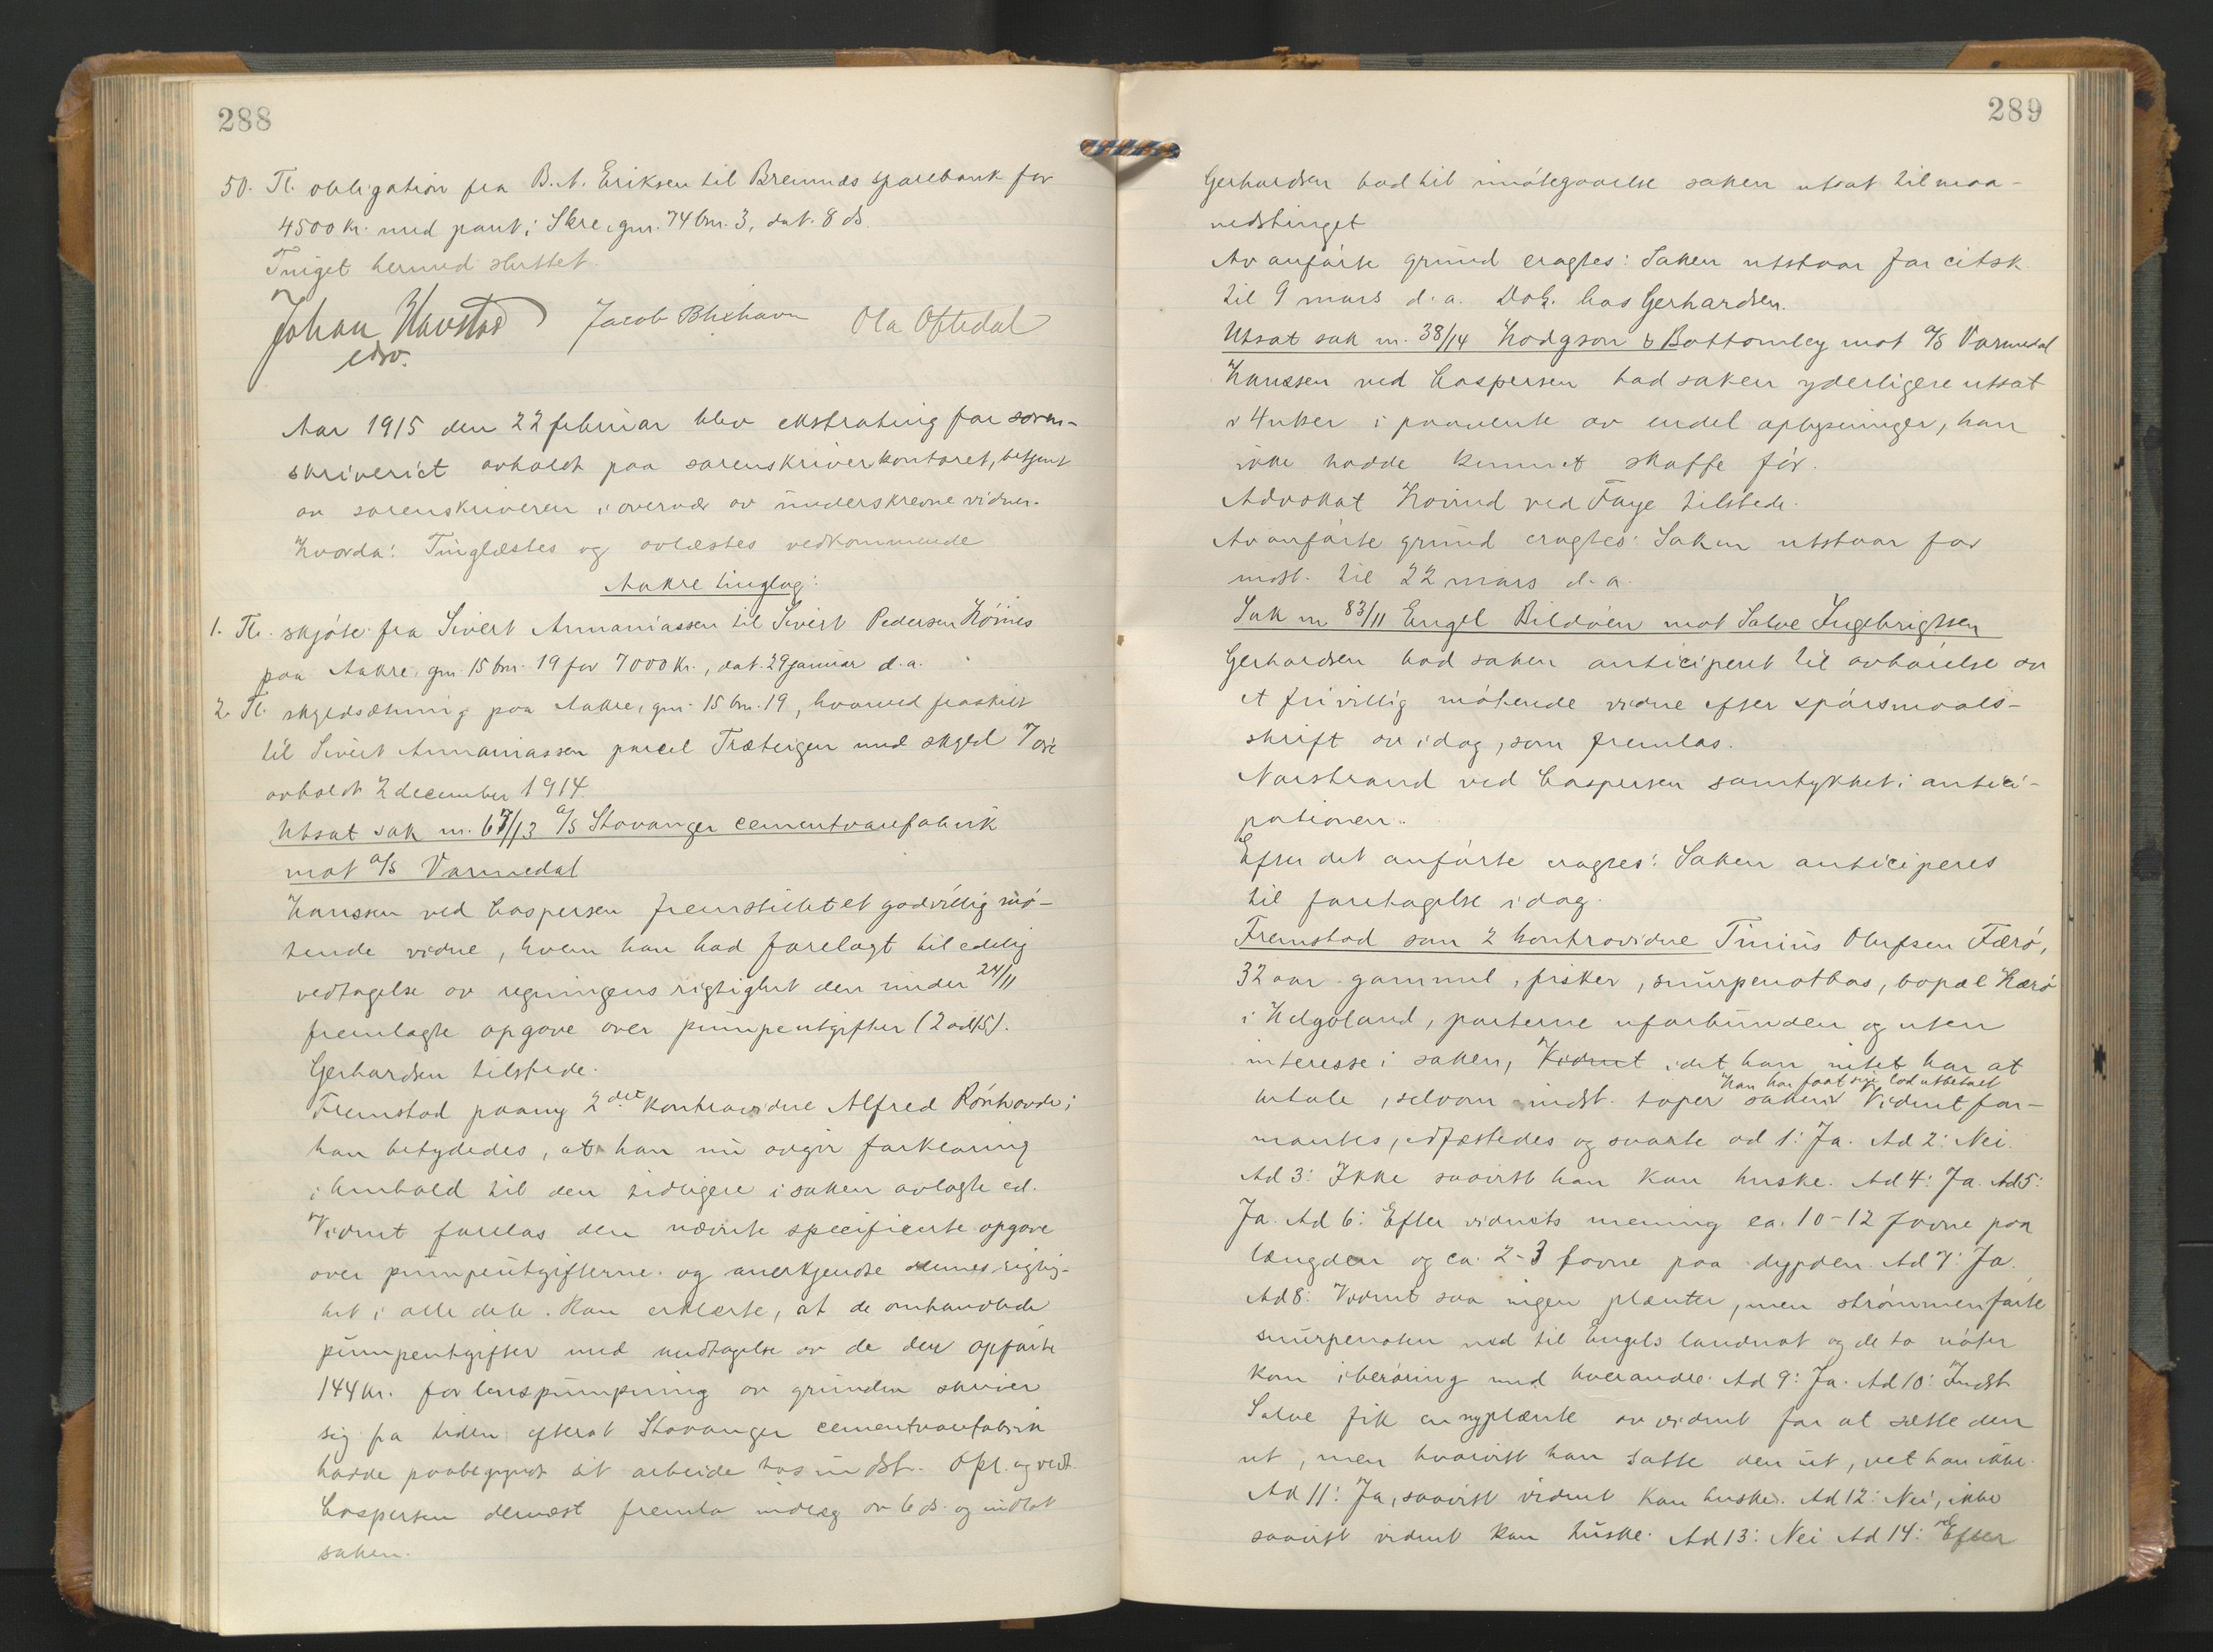 288
50. Tl. obligation fra B. A. Eriksen til Bremnes sparebank for
4500 kr. med pant i Skre, gnr. 74 bnr. 3, dat. 8 ds.
Tinget hermed sluttet.
Johan Havstad Jacob Blixhavn Ola Oftedal
edsv.
Aar 1915 den 22 februar blev ekstrating for soren-
skriveriet avholdt paa sorenskriverkontoret, betjent
av sorenskriveren i overvær av underskrevne vidner.
Hvorda: Tinglæstes og avlæstes vedkommende
Aakre tinglag:
1. Tl. skjøte fra Sivert Annaniassen til Sivert Pedersen Høines
paa Aakre, gnr. 15 bnr. 19 for 7000 kr., dat. 29 januar d.a.
2. Tl. skyldsætning paa Aakre, gnr. 15 bnr. 19, hvorved fraskilt
til Sivert Annaniassen parcel Træteigen med skyld 7 øre
avholdt 2 december 1914.
Utsat sak nr. 67/13 A/S Stavanger cementvarefabrik
mot A/S Varmedal
Hanssen ved Caspersen fremstillet et godvillig mø-
tende vidne, hvem han bad forelagt til edelig
vedtagelse av regningens rigtighet den under 24/11
fremlagte opgave over pumpeutgifter (2 ad 15).
Gerhardsen tilstede.
Fremstod paany 2det kontravidne Alfred Rønhovde;
han betydedes, at han nu avgir forklaring
i henhold til den tidligere i saken avlagte ed.
Vidnet forelas den nævnte specificerte opgave
over pumpeutgifterne og anerkjendte dennes rigtig-
het i alle dele. Han erklærte, at de omhandlede
pumpeutgifter med undtagelse av de der opførte
144 kr. for lenspumpning av grunden skriver
sig fra tiden efterat Stavanger cementvarefabrik
hadde paabegyndt sit arbeide hos indst. Opl. og vedt.
Caspersen dernæst fremla indlæg av 6 ds. og indlot
saken.
289
Gerhardsen bad til imøtegaaelse saken utsat til maa-
nedstinget
Av anførte grund eragtes: Saken utstaar for citsk.
til 9 mars d.a. Dok. hos Gerhardsen.
Utsat sak nr. 38/14 Hodgson & Bottomley mot A/S Varmedal
Hanssen ved Caspersen bad saken yderligere utsat
i 4 uker i paavente av endel oplysninger, han
ikke hadde kunnet skaffe før.
Advokat Hovind ved Faye tilstede.
Av anførte grund eragtes: Saken utstaar for
indst. til 22 mars d.a.
Sak nr 83/11 Engel Bildøen mot Salve Ingebrigtsen
Gerhardsen bad saken anticipert til avhørelse av
et frivillig møtende vidne efter spørsmaals-
skrift av idag, som fremlas.
Norstrand ved Caspersen samtykket i antici-
pationen.
Efter det anførte eragtes: Saken anticiperes
til foretagelse idag.
Fremstod som 2 kontravidne Tinius Olufsen Færø,
32 aar gammel, fisker, snurpenotbas, bopæl Hærø
i Helgoland, parterne uforbunden og uten
interesse i saken, Vidnet idet han intet har at
han har faat sin lod utbetalt
betale, selvom indst. taper saken. Vidnet for-
mantes, edfæstedes og svarte ad 1: Ja. Ad 2: Nei.
Ad 3: Ikke saavidt han kan huske. Ad 4: Ja. Ad 5:
Ja. Ad 6: Efter vidnets mening ca. 10-12 favne paa
længden og ca. 2-3 favne paa dypden. Ad 7: Ja.
Ad 8: Vidnet saa ingen plænter, men strømmen førte
snurpenoten ned til Engels landnot og de to nøter
kom i berøring med hverandre. Ad 9: Ja. Ad 10: Indst.
Salve fik en nyplænte av vidnet for at sætte den
ut, men hvorvidt han satte den ut, vet han ikke.
Ad 11: Ja, saavidt vidnet kan huske. Ad 12: Nei, ikke
saavidt vidnet kan huske. Ad 13: Nei Ad 14: Efter